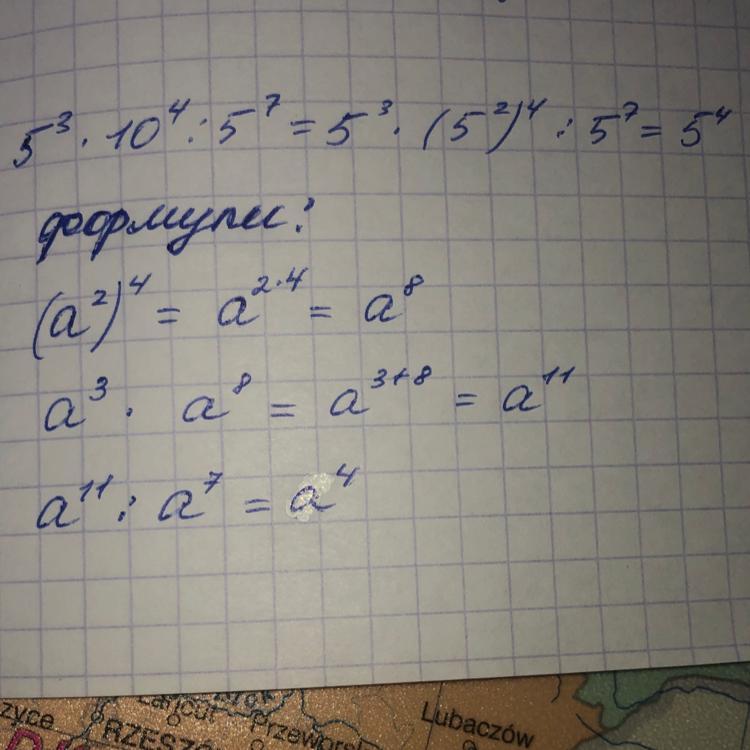 5³ · 10⁴ : 5⁷ = 5³ · (5²)⁴ : 5⁷ = 5⁴
формулы:
(a²)⁴ = a²·⁴ = a⁸
a³ · a⁸ = a³⁺⁸ = a¹¹
a¹¹ : a⁷ = a⁴
Łańcut
Przeworsk
Lubaczów
RZESZÓ